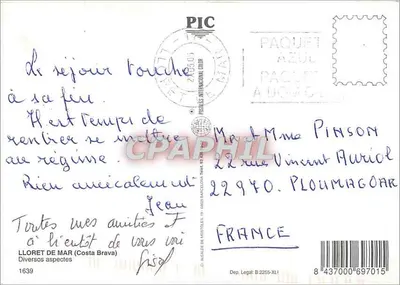 PIC
PAQUET
AZUL
PAQUET
Le séjour touche
à sa fin.
Il est temps de
rentrer se mettre
au régime.
Bien amicalement
Jean
Toutes mes amitiés et
à bientôt de vous voir
Mr et Mme PINSON
22 rue Vincent AURIOL
22970. PLOUMAGOAR
FRANCE
CPAPHIL
LLORET DE MAR (Costa Brava)
Diversos aspectes
1639
Dep. Legal B 2255-XLI
8 437000 697015